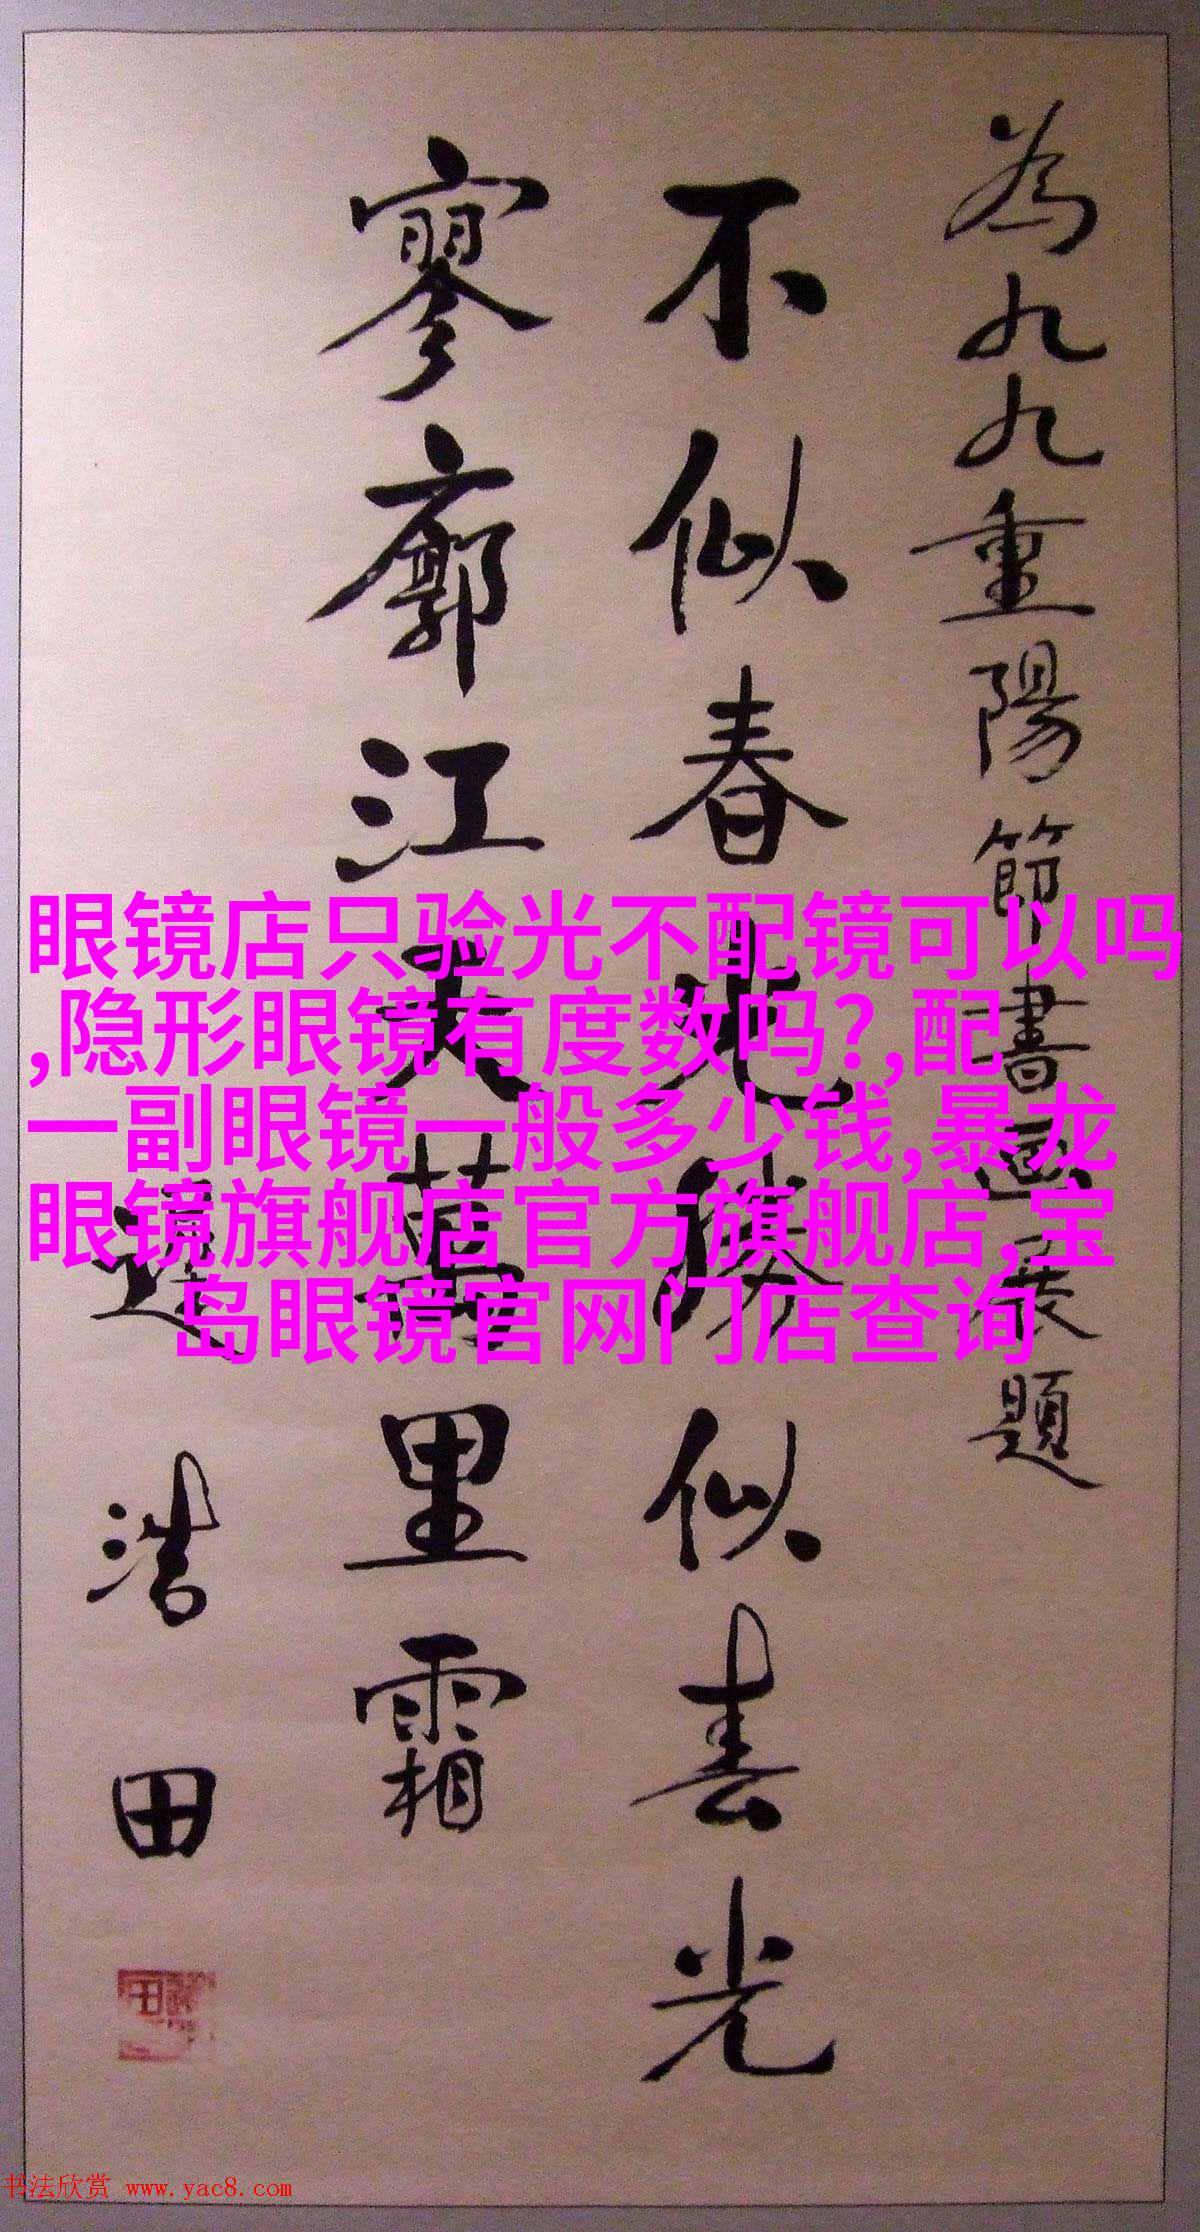 為九九重陽節書畫展題
不似春光勝似春光
寥廓江天萬里霜
浩田
眼镜店只验光不配镜可以吗
,隐形眼镜有度数吗?,配
一副眼镜一般多少钱,暴龙
眼镜旗舰店官方旗舰店,宝
岛眼镜官网门店查询
书法欣赏 www.yac8.com